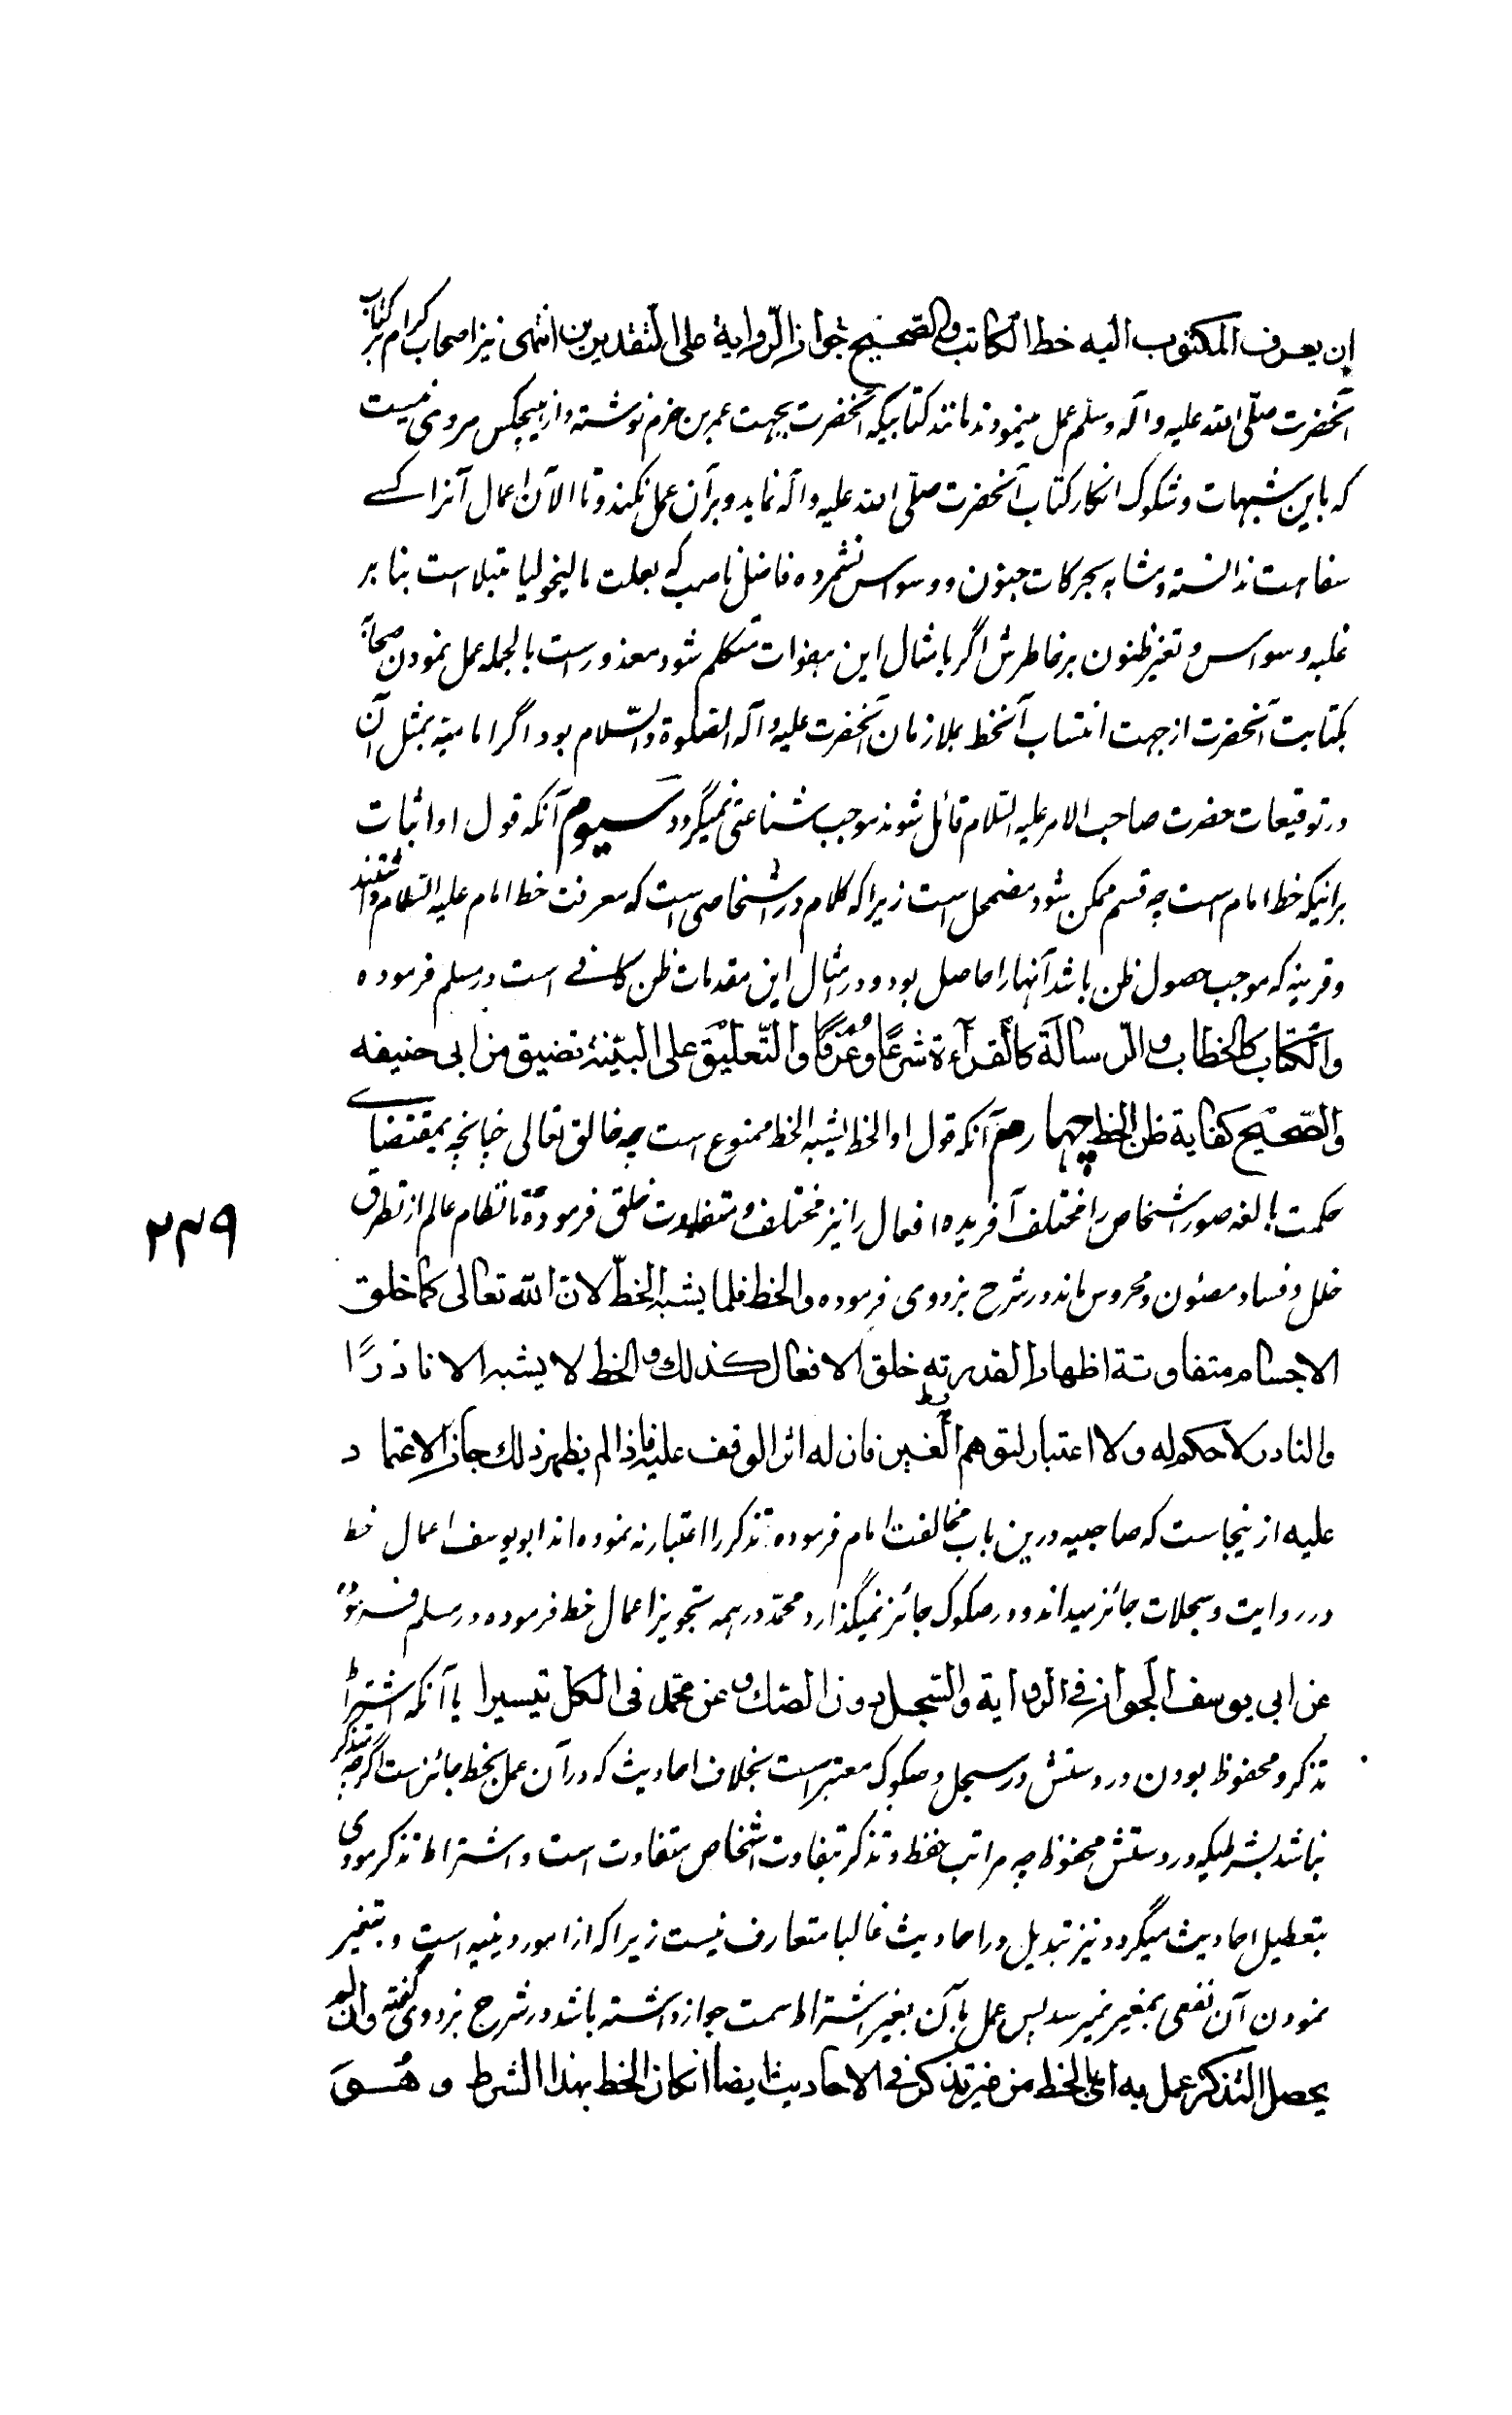 ان يعرف المكتوب اليه خط الكاتب والصحيح جواز الرواية على التقديرين انتهى نيز اصحاب كرام بر كتاب
آنحضرت صلّى الله عليه وآله وسلم عمل مينمودند مانند كتابيكه آنحضرت بجهت عمر بن حزم نوشته و از هيچكس مروى نيست
كه باين شبهات و شكوك انكار كتاب آنحضرت صلّى الله عليه وآله نمايد و بر آن عمل نكند و تا الآن اعمال آنرا كسے
سفاهت ندانسته و مشابه بحركات جنون و وسواس نشمرده فاضل ناصب كه بعلت ماليخوليا مبتلا است بنا بر
غلبه وسواس و تغير ظنون بر خاطرش اگر بامثال اين هفوات متكلم شود معذور است بالجمله عمل نمودن صحابه
بكتابت آنحضرت از جهت انتساب آنخط بملازمان آنحضرت عليه وآله الصلوة والسّلام بود اگر اماميه بمثل آن
در توقيعات حضرت صاحب الامر عليه السّلام قائل شوند موجب شناعتى نميگردد سيوم آنكه قول او اثبات
برانيكه خط امام است چه قسم ممكن شود مضمحل است زيرا كه كلام در اشخاصى است كه معرفت خط امام عليه السّلام داشتند
و قرينه كه موجب حصول ظن باشد آنها را حاصل بود و در امثال اين مقدمات ظن كافے است در مسلم فرموده
والكتاب كالخطاب والرّسالة كالقرآءة شرعًا وعُرفًا والتّعليق على البيّنة تضييق من ابى حنيفه
والصّحيح كفاية ظن الخط چهارم آنكه قول او الخط يشبه الخط ممنوع است چه خالق تعالى چنانچه بمقتضاے
حكمت بالغه صور اشخاص را مختلف آفريده افعال را نيز مختلف و متفاوت خلق فرموده تا نظام عالم از تطرق
خلل و فساد مصئون و محروس ماند در شرح بزدوى فرموده والخط قلما يشبه الخطّ لان الله تعالى كما خلق
الاجسام متفاوتة اظهارا لقدرته خلق الافعال كذلك والخط لا يشبه الا نادرًا
والنادر لا حكم له ولا اعتبار لتوهم التغيير فان له اثرا لوقف عليه فاذا لم يظهر ذلك جاز الاعتماد
عليه ازينجاست كه صاحبيه درين باب مخالفت امام فرموده تذكر را اعتبار نه نموده اند ابويوسف اعمال خط
در روايت و سجلات جائز ميداند و در صكوك جائز نميگذارد و محمّد در همه تجويز اعمال خط فرموده در مسلم فرموده
عن ابى يوسف الجواز فے الرواية والسّجل دون الصّك وعن محمّد فى الكل تيسيرا با آنكه اشتراط
تذكر و محفوظ بودن در دستش در سجل و صكوك معتبر است بخلاف احاديث كه در آن عمل بخط جائز است اگرچه متذكر
نباشد بشرطيكه در دستش محفوظ چه مراتب حفظ و تذكر بتفاوت اشخاص متفاوت است و اشتراط تذكر مودى
بتعطيل احاديث ميگردد نيز تبديل در احاديث غالبا متعارف نيست زيرا كه از امور دينيه است و بتغير
نمودن آن نفعى بمغير نميرسد پس عمل بآن بغير اشتراط سمت جواز داشته باشد در شرح بزدوى گفته وان لم
يحصل التذكر عمل به اى بالخط من غير تذكر فے الاحاديث ايضا ان كان الخط بهذا الشرط وهُو
۲۳۹